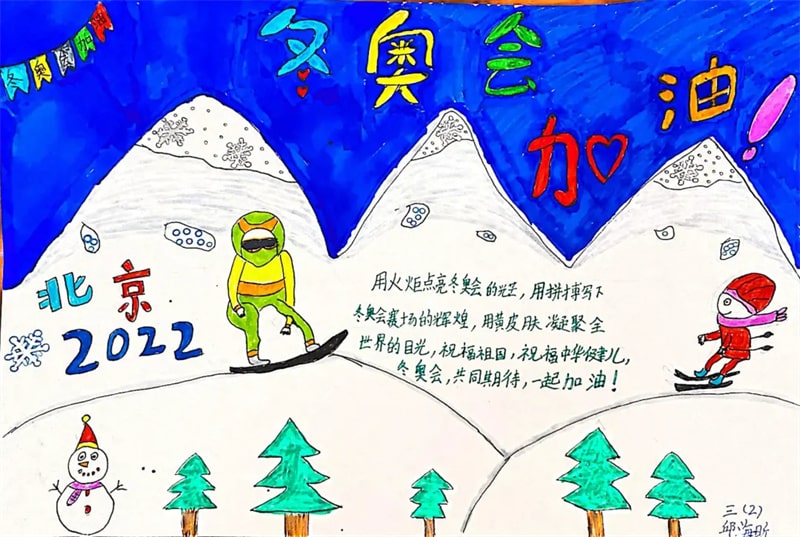 冬奥会
冬奥会
加油!
北京
2022
用火炬点亮冬奥会的 ,用拼搏写下
冬奥会赛场的辉煌,用黄皮肤凝聚全
世界的目光,祝福祖国,祝福中华健儿,
冬奥会,共同期待,一起加油!
三(2)
邱海